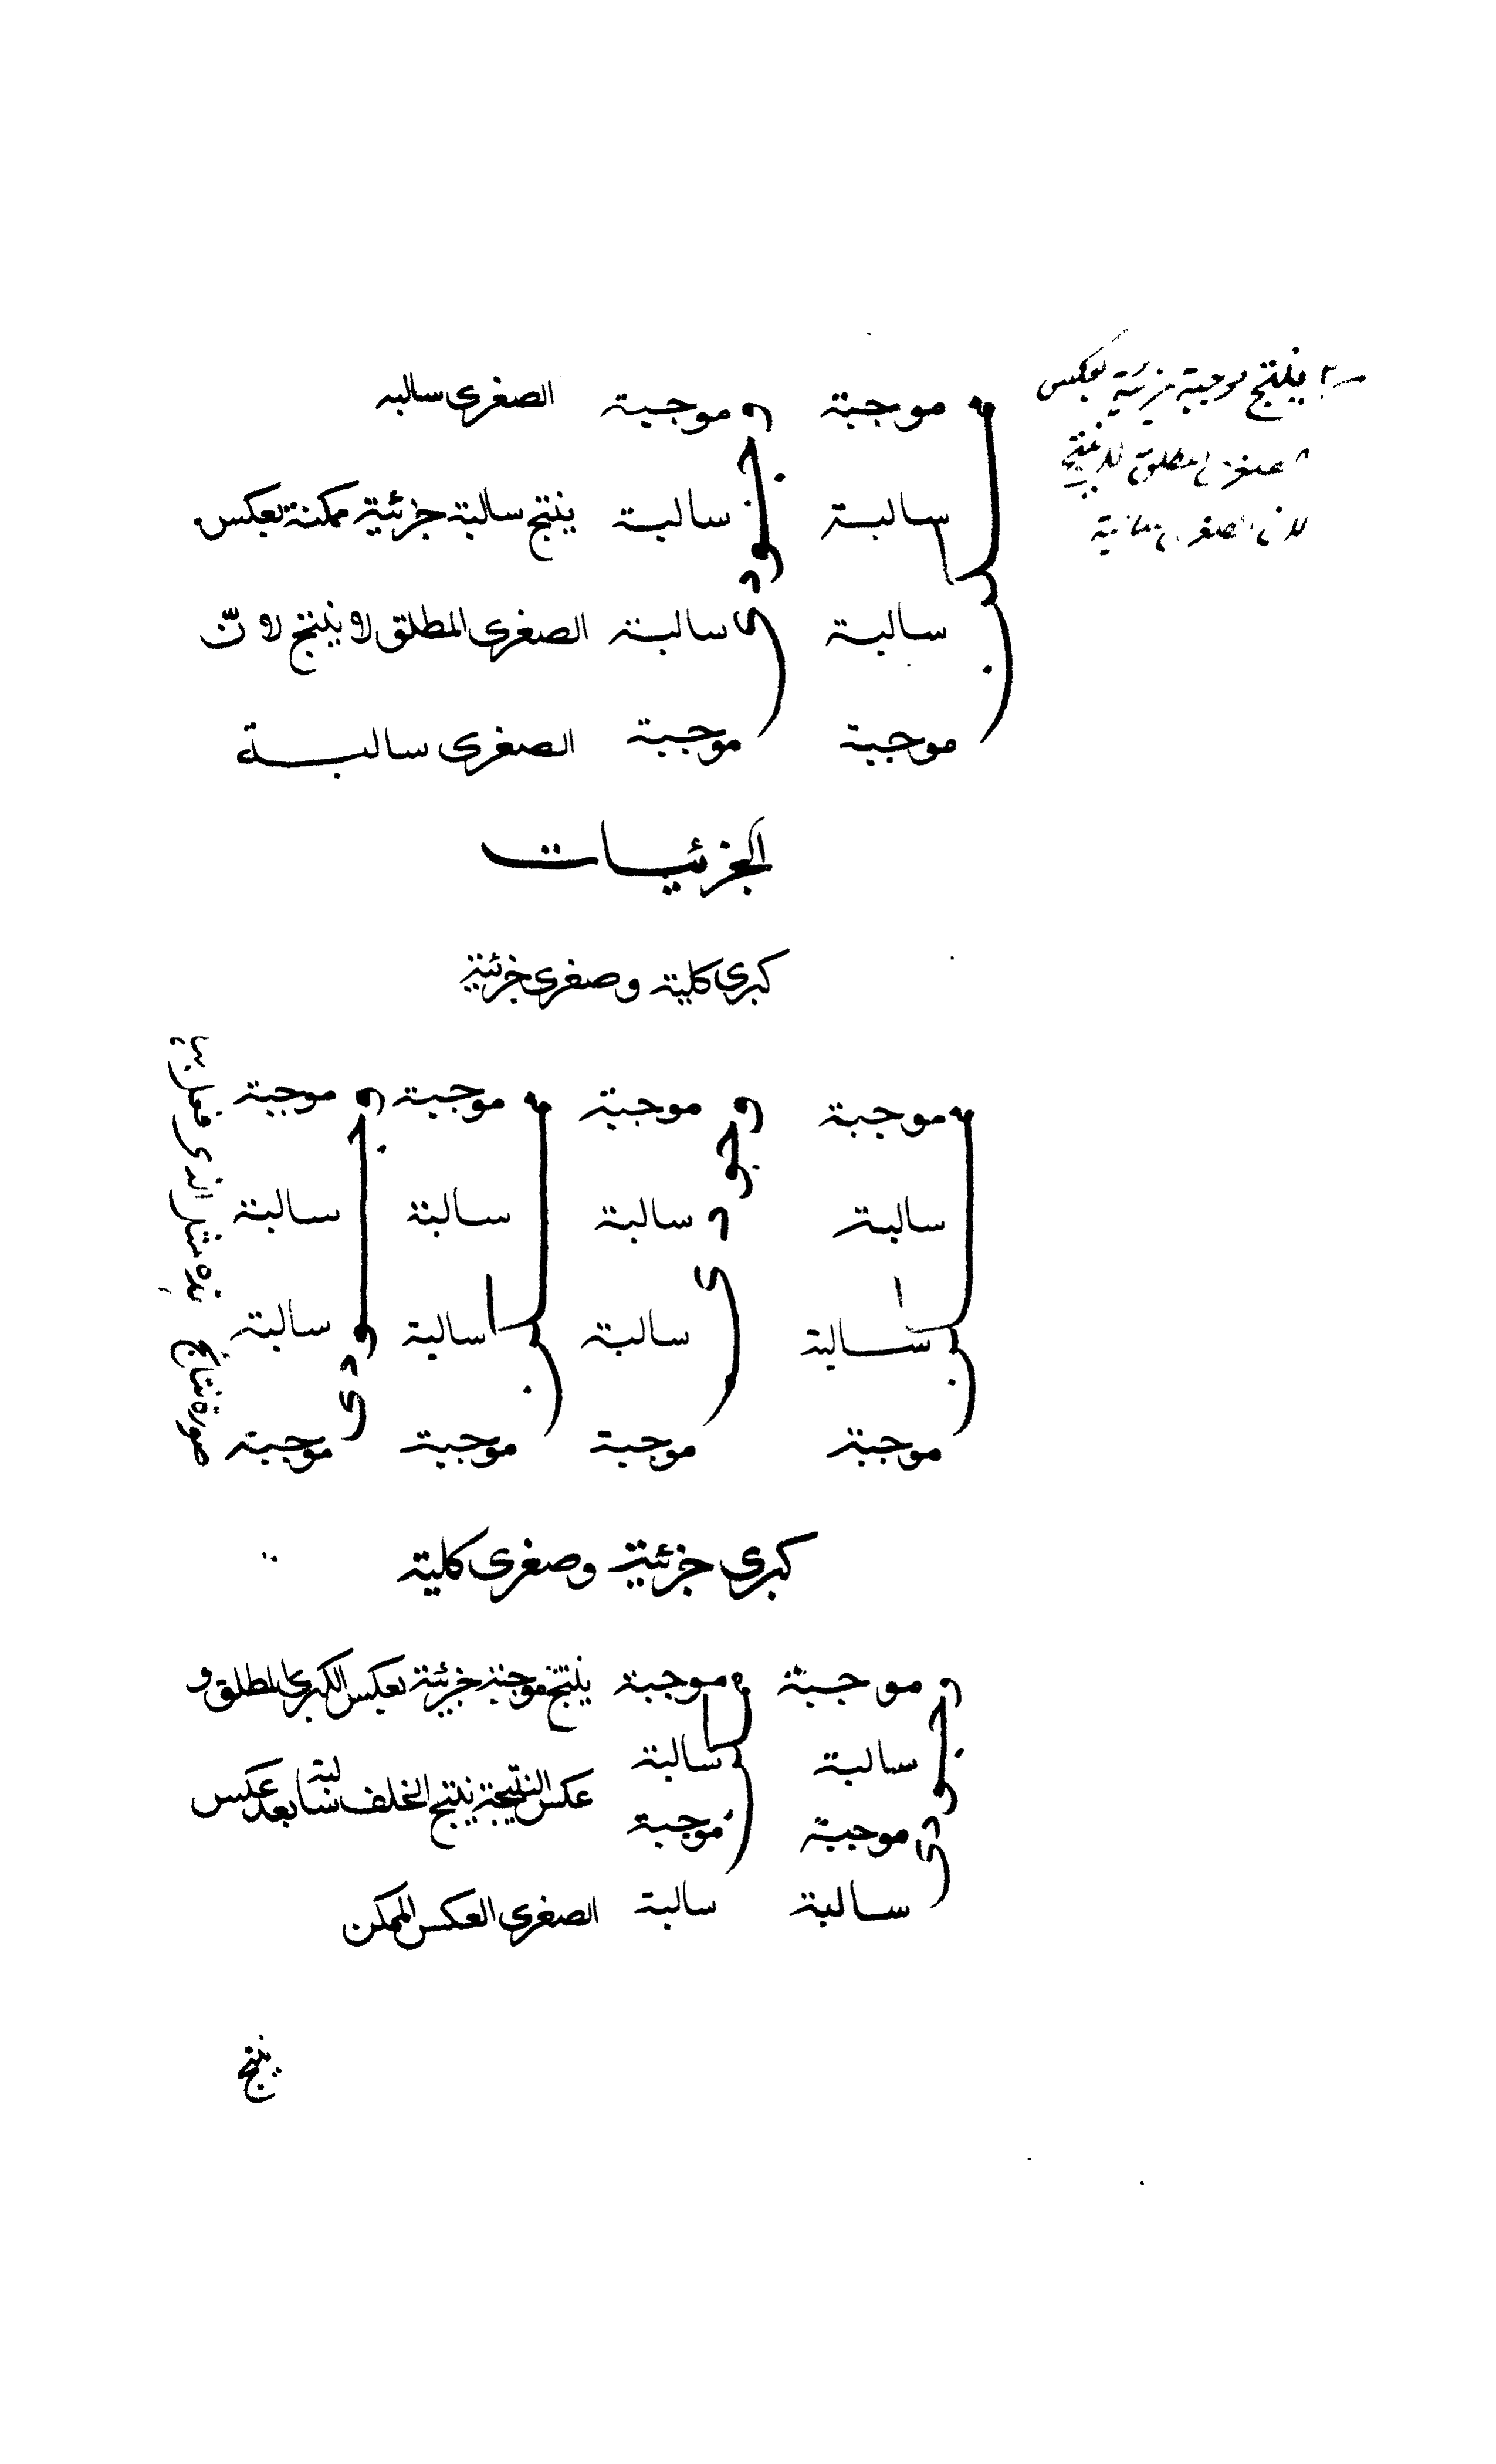 ينتج موجبة جزئية بعكس
موجبة موجبة الصغرى سالبه
سالبة سالبة ينتج سالبة جزئية ممكنة بعكس
سالبة سالبة الصغرى المطلق لا ينتج لانّ
موجبة موجبة الصغرى سالبة
الجزئيات
كبرى كلية وصغرى جزئية
موجبة موجبة موجبة موجبة
سالبة سالبة سالبة سالبة
سالبة سالبة سالبة سالبة
موجبة موجبة موجبة موجبة
صورة نتاج
كبرى جزئية وصغرى كلية
موجبة موجبة ينتج موجبة جزئية بعكس الكبرى المطلق و
سالبة سالبة عكس النتيجة ينتج الخلف سالبة بعد عكس
موجبة موجبة
سالبة سالبة الصغرى العكس الممكن
ينتج